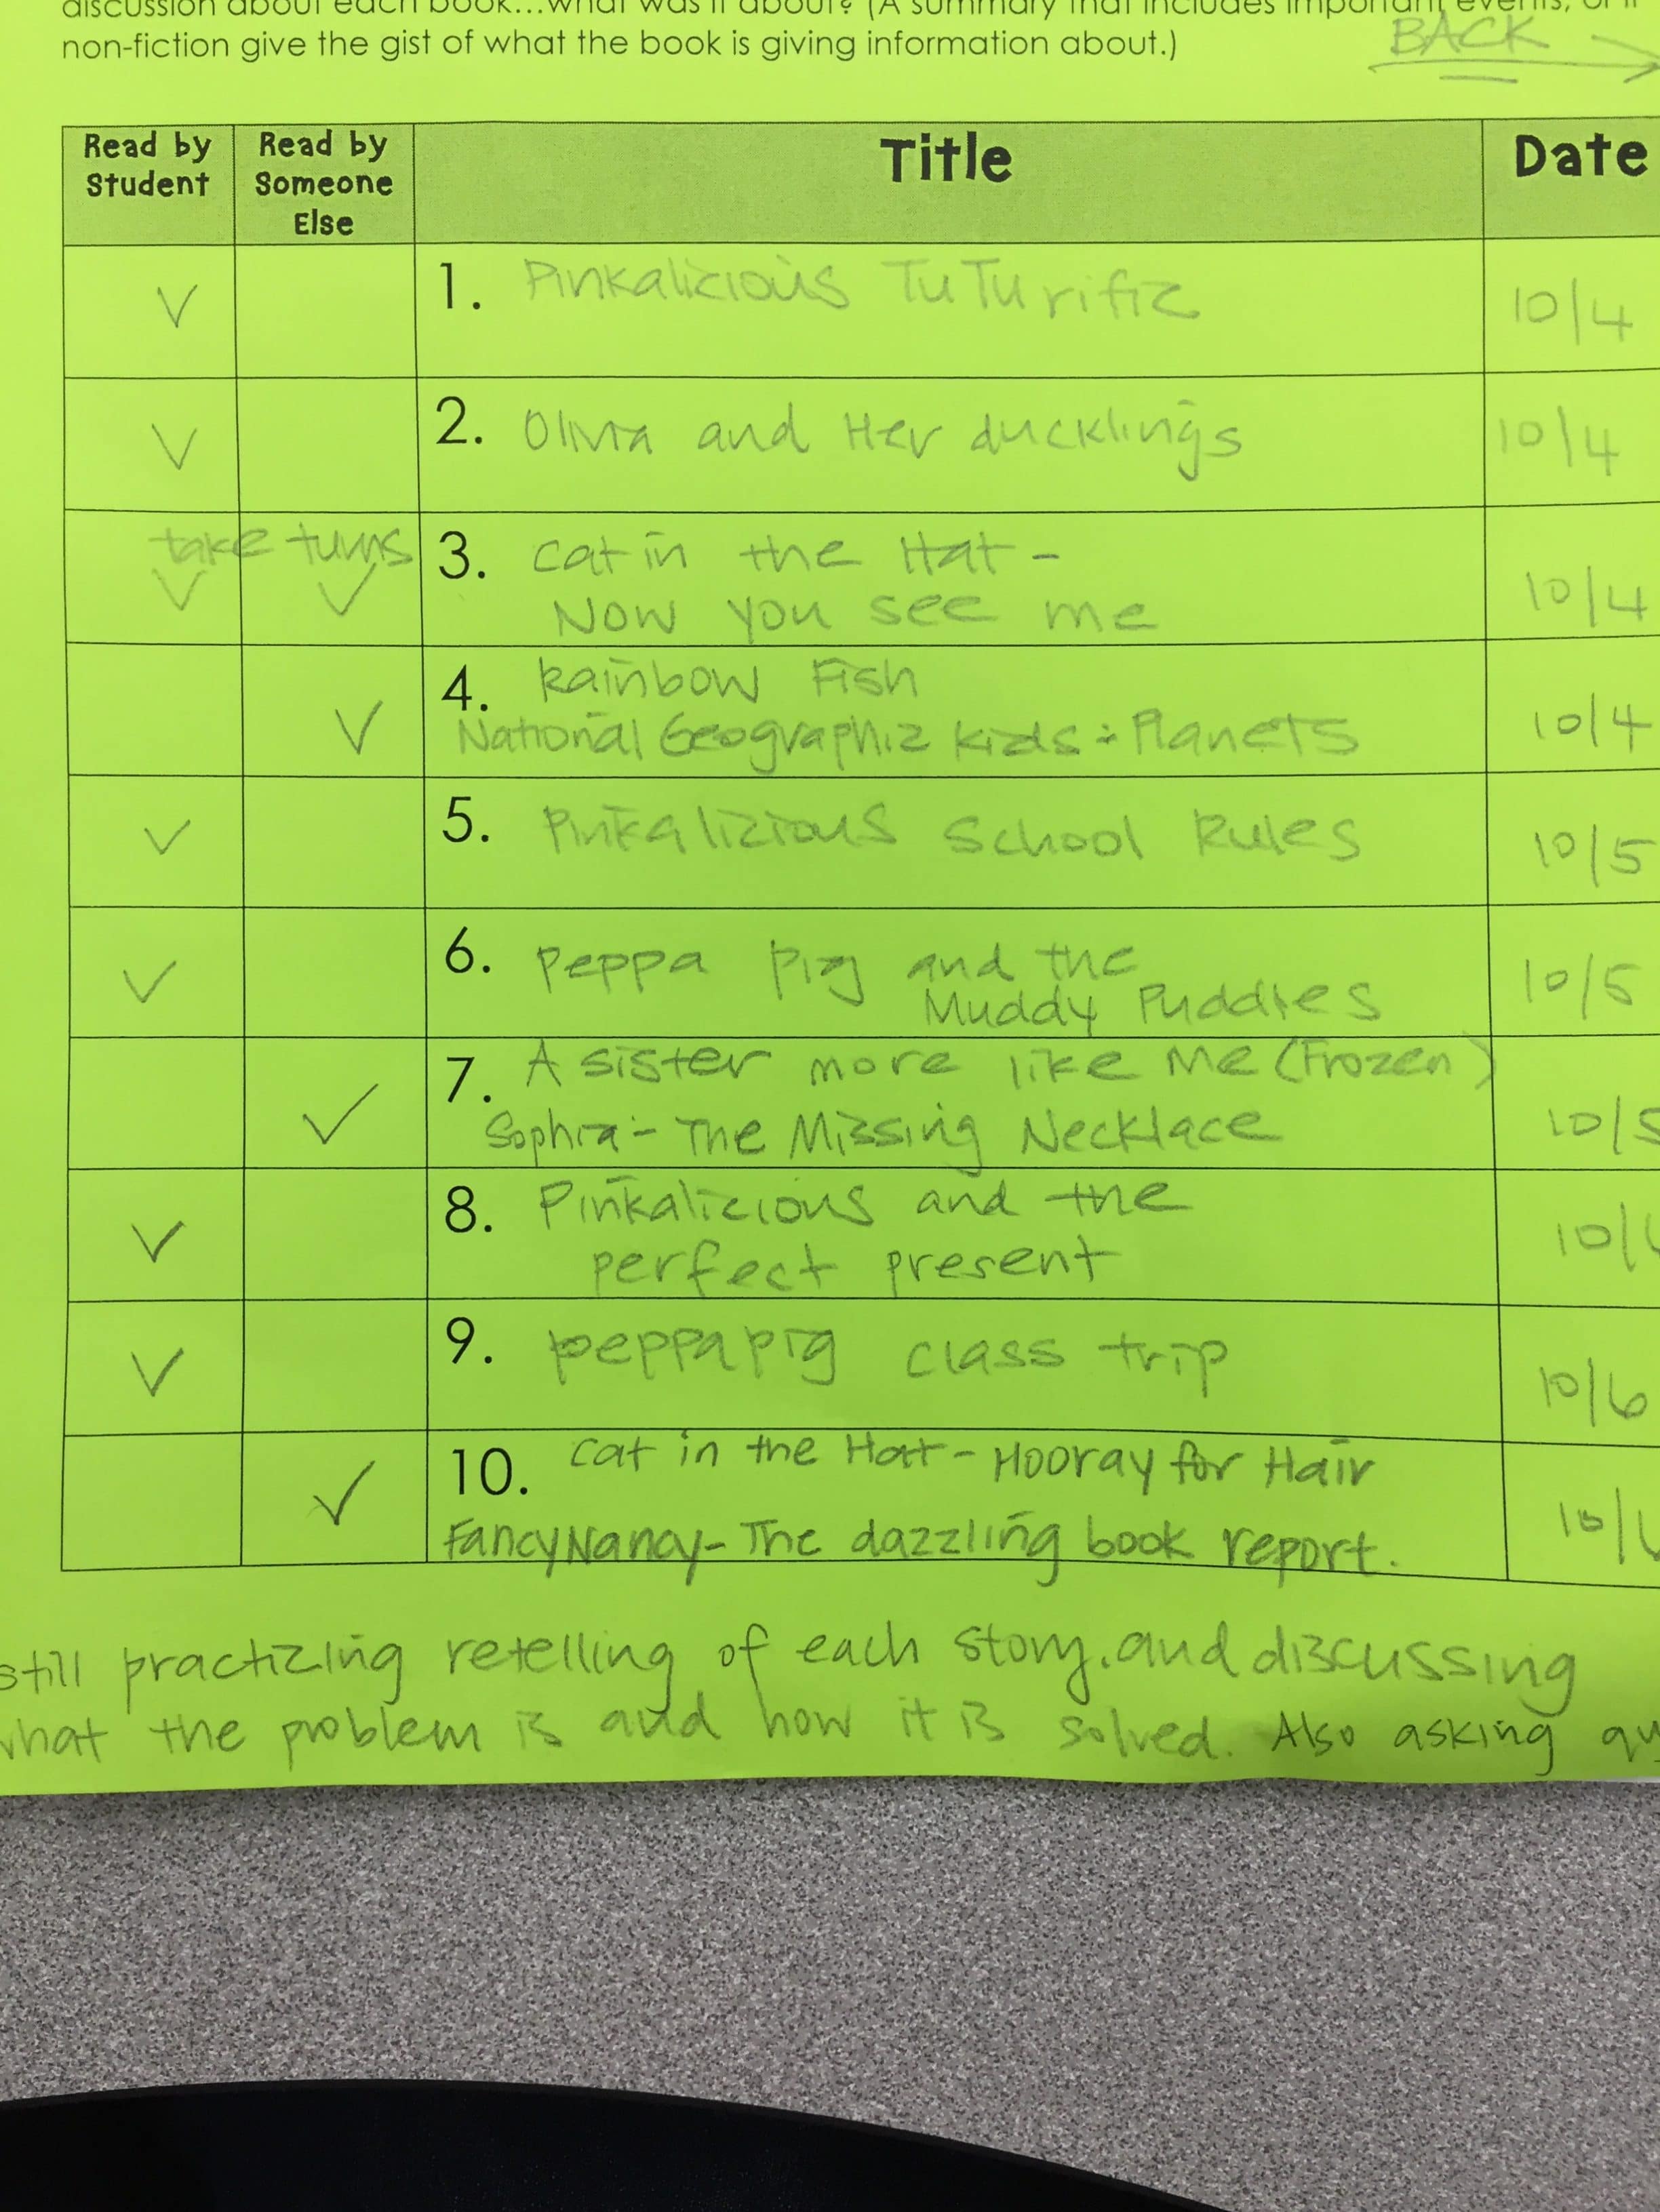 discussion about each book...what was it about? (A summary that includes important events, or if
non-fiction give the gist of what the book is giving information about.)
BACK
Read by Student
Read by Someone Else
Title
Date
1. Pinkalicious TuTurific 10/4
2. Olivia and Her ducklings 10/4
take turns
3. Cat in the Hat -
Now you see me 10/4
4. Rainbow Fish
National Geographic Kids: Planets 10/4
5. Pinkalicious School Rules 10/5
6. Peppa Pig and the
Muddy Puddles 10/5
7. A sister more like Me (Frozen)
Sophia - The Missing Necklace 10/5
8. Pinkalicious and the
perfect present 10/
9. peppa pig class trip 10/6
10. Cat in the Hat - Hooray for Hair
Fancy Nancy - The dazzling book report. 10/
still practicing retelling of each story, and discussing
what the problem is and how it is solved. Also asking